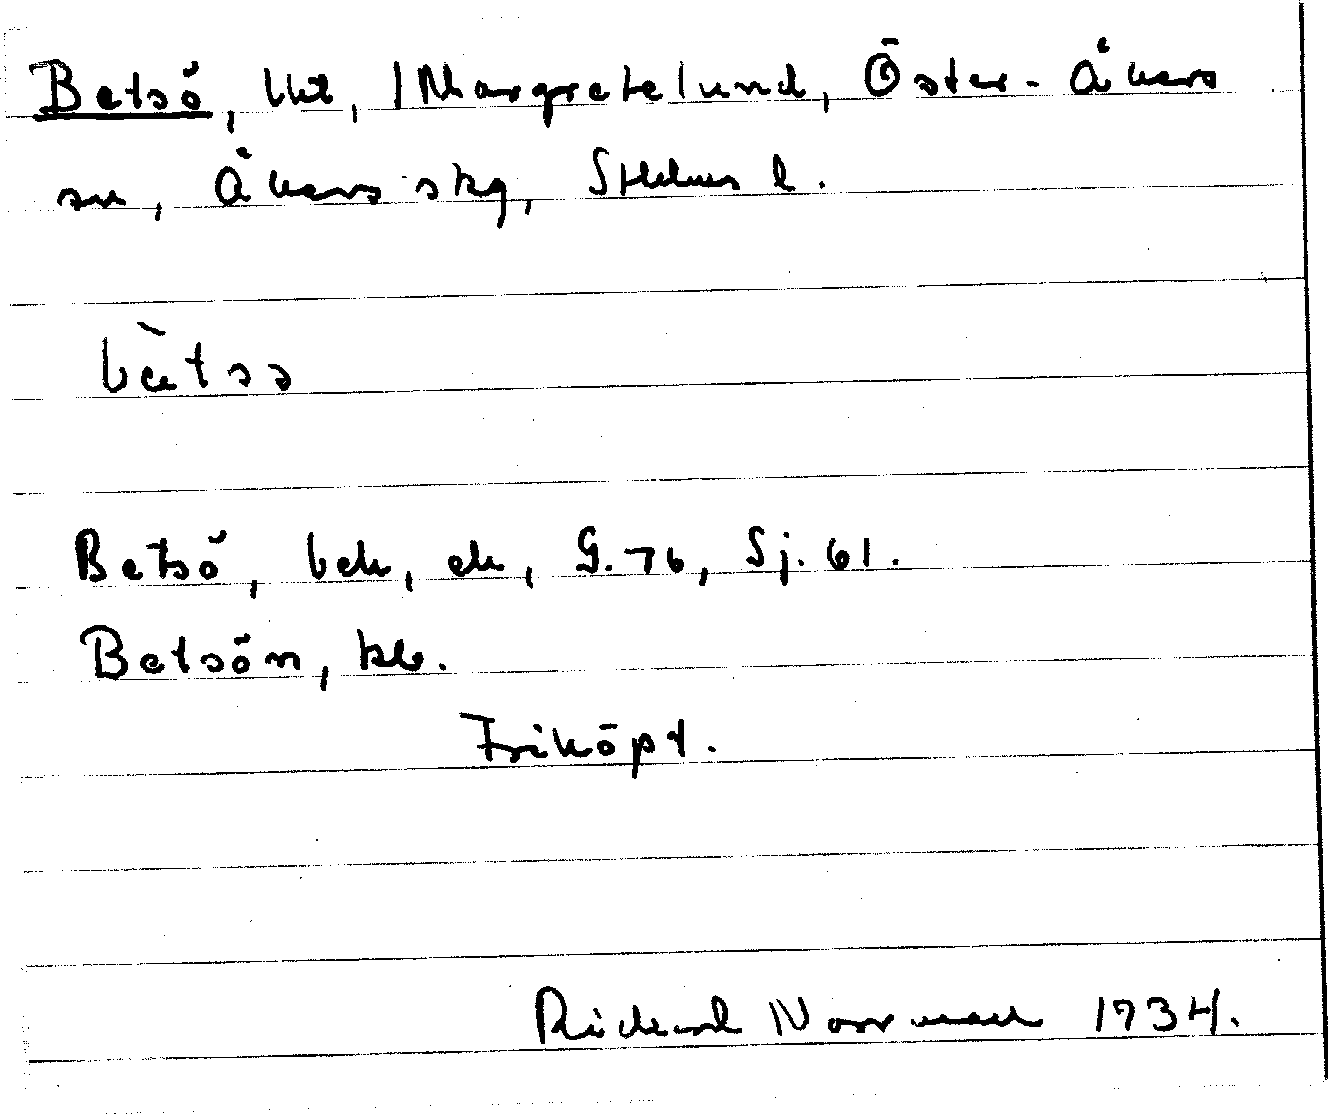 Betsö, lht, Margretelund, Öster-Åkers
sn, Åkers skg, Sthlms l.
bètsə
Betsö, bek, ek, G.76, Sj. 61.
Betsön, kb.
Friköpt.
Rickard Norrman 1934.